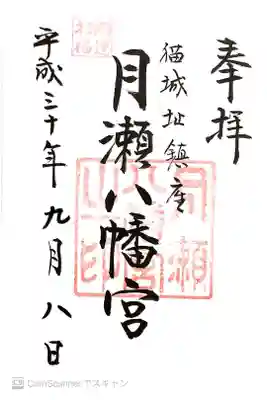 奉拝
猫城址鎮座
月瀬八幡宮
平成三十年九月八日
CamScannerでスキャン